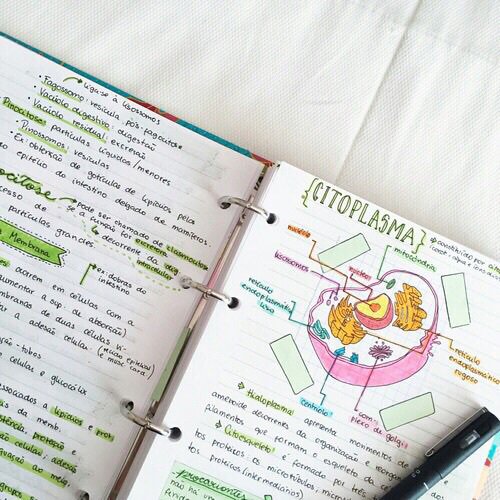 Ligase à lisossomos
• Fagossomo: vesícula pós-fagocitose
• Vacúolo digestivo: digestão
• Vacúolo residual: excreção
Pinocitose: partículas líquidas/menores
• Pinossomos: vesículas
• Ex: obtenção de gotículas de lipídios pela
do epitélio do intestino delgado de mamíferos.
ocitose
pode ser chamado de clasmocitose
cesso de
se a função for excretora
partículas grandes
decorrente da dig.
intracelular
Membrana
ex: dobras do
intestino
ocorrem em células com a
aumentar a sup. de absorção)
membranas de duas células vi-
ar a adesão celular.
(tecido epitelial
e musc. card.)
celular e glicocálix
associados a lipídios e prot
s da memb.
tência, proteção e
ão celular; adesão
{CITOPLASMA}
constituído por
mitocôndria
núcleo
lisossomos
nucléolo
retículo
endoplasmático
liso
retículo
endoplasmático
rugoso
centríolo
com-
plexo de golgi
Hialoplasma: apresenta movimentos de
ameboide decorrentes da organização e reorga
filamentos que formam o esqueleto da
Citoesqueleto: é formado por três
tos proteicos: os microtúbulos, micro
tos proteicos (intermediários)
procariontes
não há um